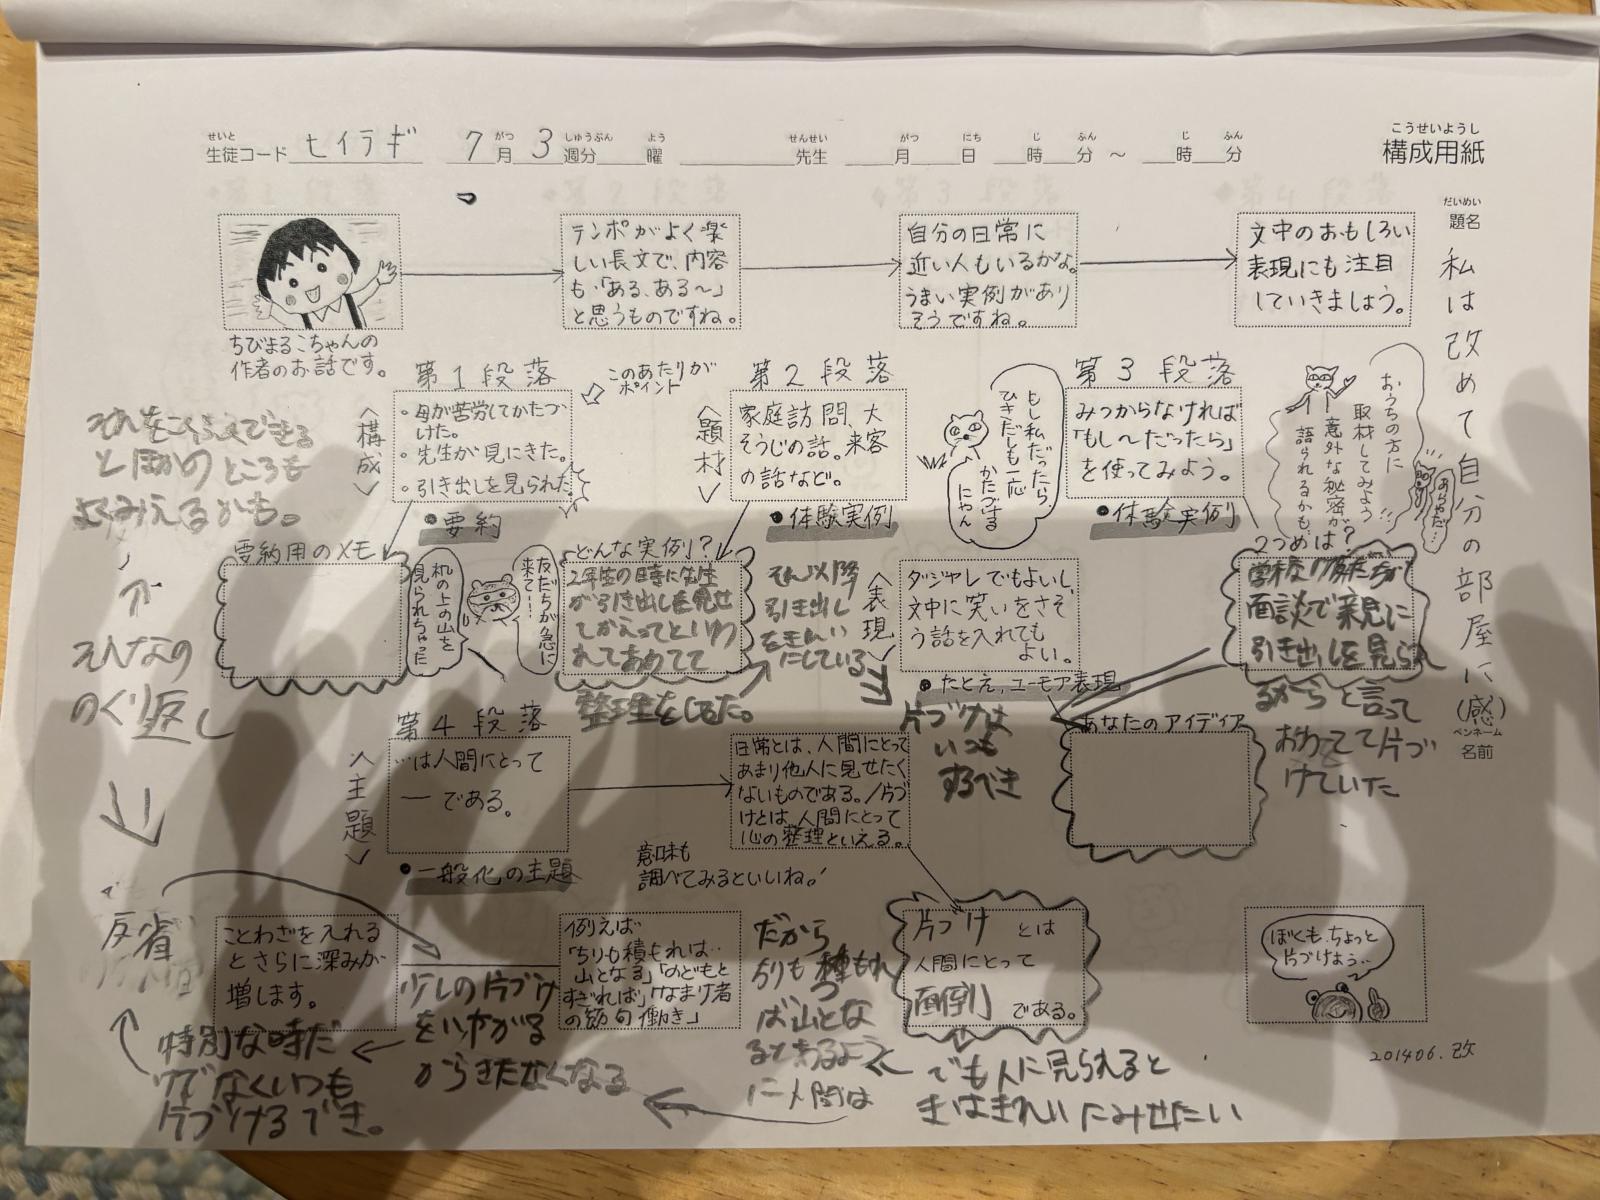 せいと
生徒コード セイラギ 7 がつ月 3 しゅうぶん週分 よう曜
せんせい先生 がつ月 にち日 じ時 ふん分 ～ じ時 ふん分
こうせいようし
構成用紙
だいめい
題名
私は改めて自分の部屋に(感)
ペンネーム
名前
ちびまるこちゃんの
作者のお話です。
テンポがよく楽
しい長文で、内容
も「ある、ある～」
と思うものですね。
自分の日常に
近い人もいるかな。
うまい実例があり
そうですね。
文中のおもしろい
表現にも注目
していきましょう。
第1段落
このあたりが
ポイント
＜構成＞
・母が苦労してかたづ
けた。
・先生が見にきた。
・引き出しを見られた。
●要約
要約用のメモ
机の上の山を
見られちゃった
友だちが急に
来て…
第2段落
＜題材＞
家庭訪問、大
そうじの話。来客
の話など。
●体験実例
どんな実例？
2年生の時に先生
が引き出しを見せ
てかえってといわ
れてあわてて
整理をしだした。
それ以降
引き出し
をきれい
にしている
もし私だったら、
ひきだしも一応
かたづする
にゃん
第3段落
みつからなければ
「もし～だったら」
を使ってみよう。
●体験実例
おうちの方に
取材してみよう
意外な秘密が
語られるかも‥
あらやだ…
2つめは？
面談で親に
引き出しを見られ
るからと言って
あわてて片づ
けていた
＜表現＞
ダジャレでもよいし、
文中に笑いをさそ
う話を入れても
よい。
●たとえ、ユーモア表現
片づけは
いつも
するべき
あなたのアイディア
それをこくふくできる
とほかのところも
よくみえるかも。
が
そんなの
のくり返し
反省
第4段落
＜主題＞
…は人間にとって
― である。
●一般化の主題
日常とは、人間にとって
あまり他人に見せたく
ないものである。／片づ
けとは、人間にとって
心の整理といえる。
意味も
調べてみるといいね。
片づけ とは
人間にとって
面倒 である。
でも人に見られると
きはきれいにみせたい
だから
ちりも積もれ
ば山とな
るとあるよう
に人間は
例えば
「ちりも積もれば‥
山となる」「のどもと
すぎれば」「なまけ者
の節句働き」
少しの片づけ
をいやがる
からきたなくなる
ことわざを入れる
とさらに深みが
増します。
特別な時だ
けでなくいつも
片づけるべき。
ぼくも、ちょっと
片づけよう‥
201406.改